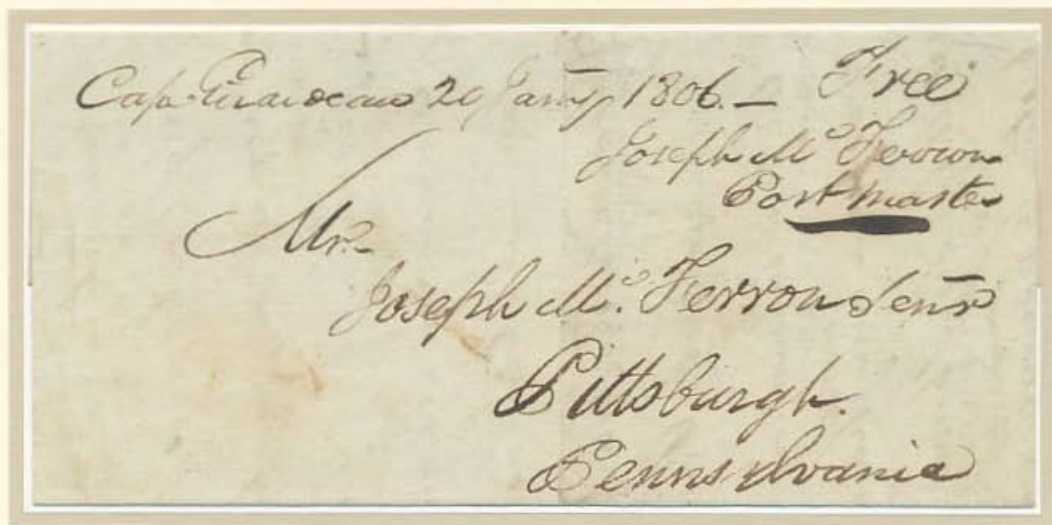 Cape Girardeau 20 Jany 1806. — Free
Joseph Mc Ferron
Post master
Mr.
Joseph Mc. Ferron Senr
Pittsburgh.
Pennsylvania